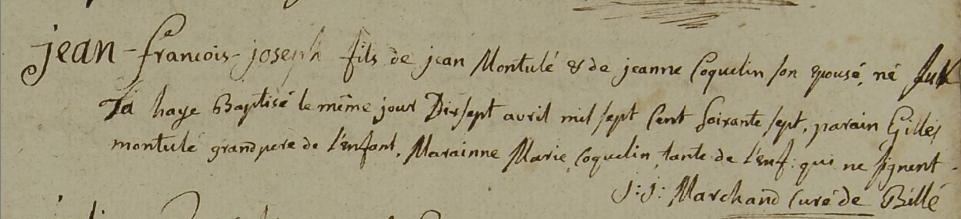 jean-francois-joseph fils de jean Montulé & de jeanne Coquelin son epousé, né sur
La haye Baptisé le même jour Dixsept avril mil sept Cent Soixante sept, parain Gilles
montulé grandpere de l'enfant, Marainne Marie Coquelin tante de l'enf: qui ne signent.
J: J: Marchand Curé de Billé